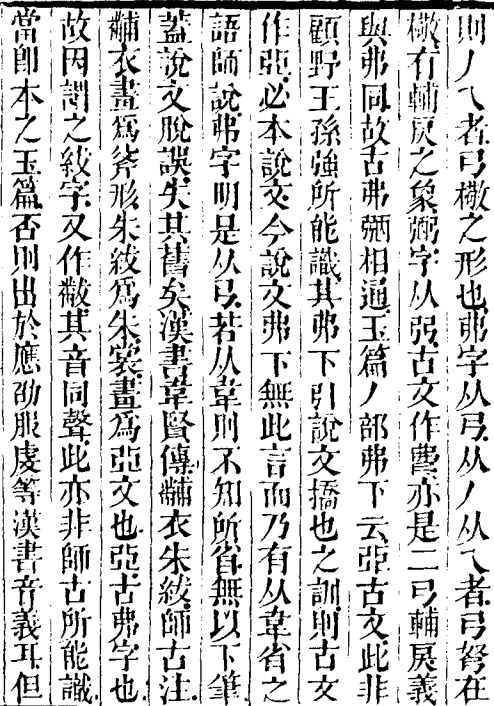 則丿乀者弓檄之形也弗字从弓从丿从乀者弓弩在
檄有輔戾之象弼字从弜古文作㢸亦是二弓輔戾義
與弗同故古弗弼相通玉篇丿部弗下云亞古文此非
顧野王孫強所能識其弗下引說文撟也之訓則古文
作亞必本說文今說文弗下無此言而乃有从韋省之
語師說弗字明是从弓若从韋則不知所省無以下筆
蓋說文脫誤失其舊矣漢書韋賢傳黼衣朱紱師古注
黼衣畫爲斧形朱紱爲朱裳畫爲亞文也亞古弗字也
故因謂之紱字又作黻其音同聲此亦非師古所能識
當卽本之玉篇否則出於應劭服虔等漢書音義耳但